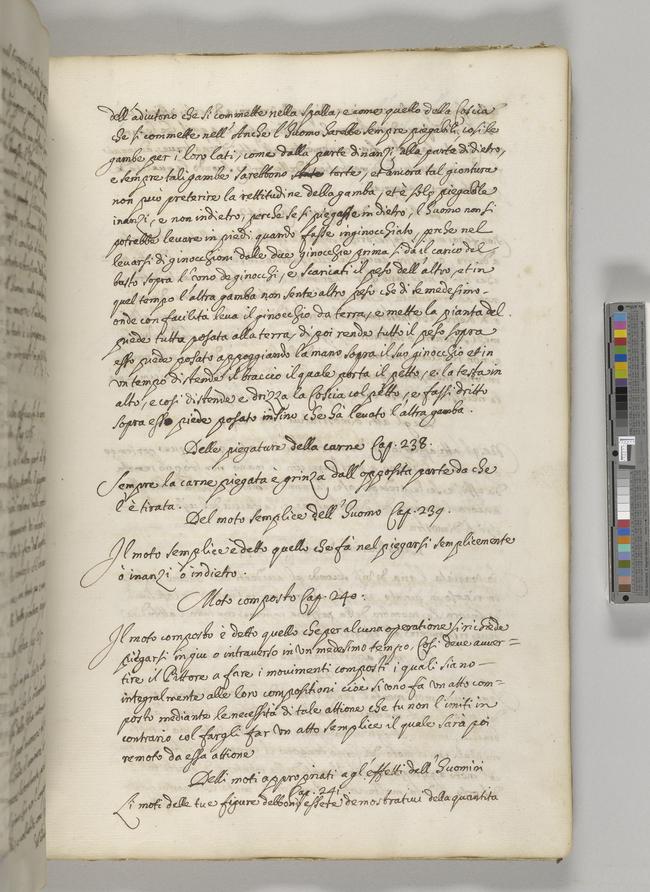 dell'adiutorio che si commette nella spalla, e come quello della Coscia
che si commette nell'Anche l'huomo harebbe sempre piegabili, cosi le
gambe per i loro lati, come dalla parte dinanzi alla parte di dietro,
e sempre tali gambe sarebbono torte, et ancora tal giontura
non può preterire la rettitudine della gamba, et è solo piegabile
inanzi, e non indietro, perche se si piegasse indietro, l'huomo non si
potrebbe levare in piedi quando fosse inginocchiato, perche nel
levarsi di ginocchioni dalle due ginocchie prima si dà il carico del
busto sopra l'uno de ginocchi, e scaricasi il peso dell'altro, et in
quel tempo l'altra gamba non sente altro peso che di se medesimo
onde con facilità leva il ginocchio da terra, e mette la pianta del
piede tutta posata alla terra, di poi rende tutto il peso sopra
esso piede posato appoggiando la mano sopra il suo ginocchio et in
un tempo distende il braccio il quale porta il petto, e la testa in
alto, e cosi distende e drizza la Coscia col petto, e fassi dritto
sopra esso piede posato insino che hà levato l'altra gamba.
Delle piegature della carne Cap. 238.
Sempre la carne piegata è grinza dall'opposita parte da che
l'è tirata.
Del moto semplice dell'huomo Cap. 239.
Il moto semplice è detto quello che fà nel piegarsi semplicemente
ò inanzi ò indietro.
Moto composto Cap. 240.
Il moto composto è detto quello che per alcuna operatione si richieda
piegarsi in giu o intraverso in un medesimo tempo, Cosi deve auuer=
tire il Pittore a fare i movimenti composti i quali siano
integralmente alle loro compositioni cioè si uno fa un atto com=
posto mediante le necessità di tale attione che tu non l'imiti in
contrario col fargli far un atto semplice il quale sarà poi
remoto da essa attione
Delli moti appropriati agl'effetti dell'huomini
Cap. 241
Li moti delle tue figure debbono essere demostrativi della quantità